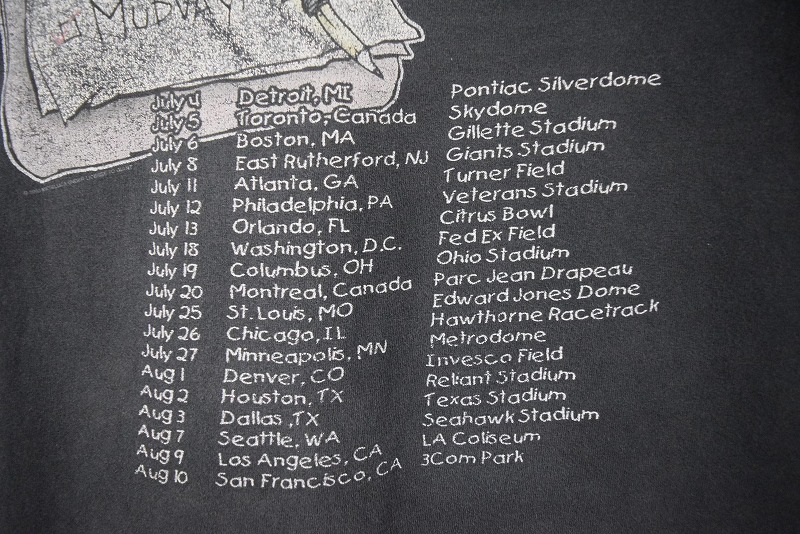 MUDVAY
July 4 Detroit, MI Pontiac Silverdome
July 5 Toronto, Canada Skydome
July 6 Boston, MA Gillette Stadium
July 8 East Rutherford, NJ Giants Stadium
July 11 Atlanta, GA Turner Field
July 12 Philadelphia, PA Veterans Stadium
July 13 Orlando, FL Citrus Bowl
July 18 Washington, D.C. Fed Ex Field
July 19 Columbus, OH Ohio Stadium
July 20 Montreal, Canada Parc Jean Drapeau
July 25 St. Louis, MO Edward Jones Dome
July 26 Chicago, IL Hawthorne Racetrack
July 27 Minneapolis, MN Metrodome
Aug 1 Denver, CO Invesco Field
Aug 2 Houston, TX Reliant Stadium
Aug 3 Dallas ,TX Texas Stadium
Aug 7 Seattle, WA Seahawk Stadium
Aug 9 Los Angeles, CA LA Coliseum
Aug 10 San Francisco, CA 3Com Park